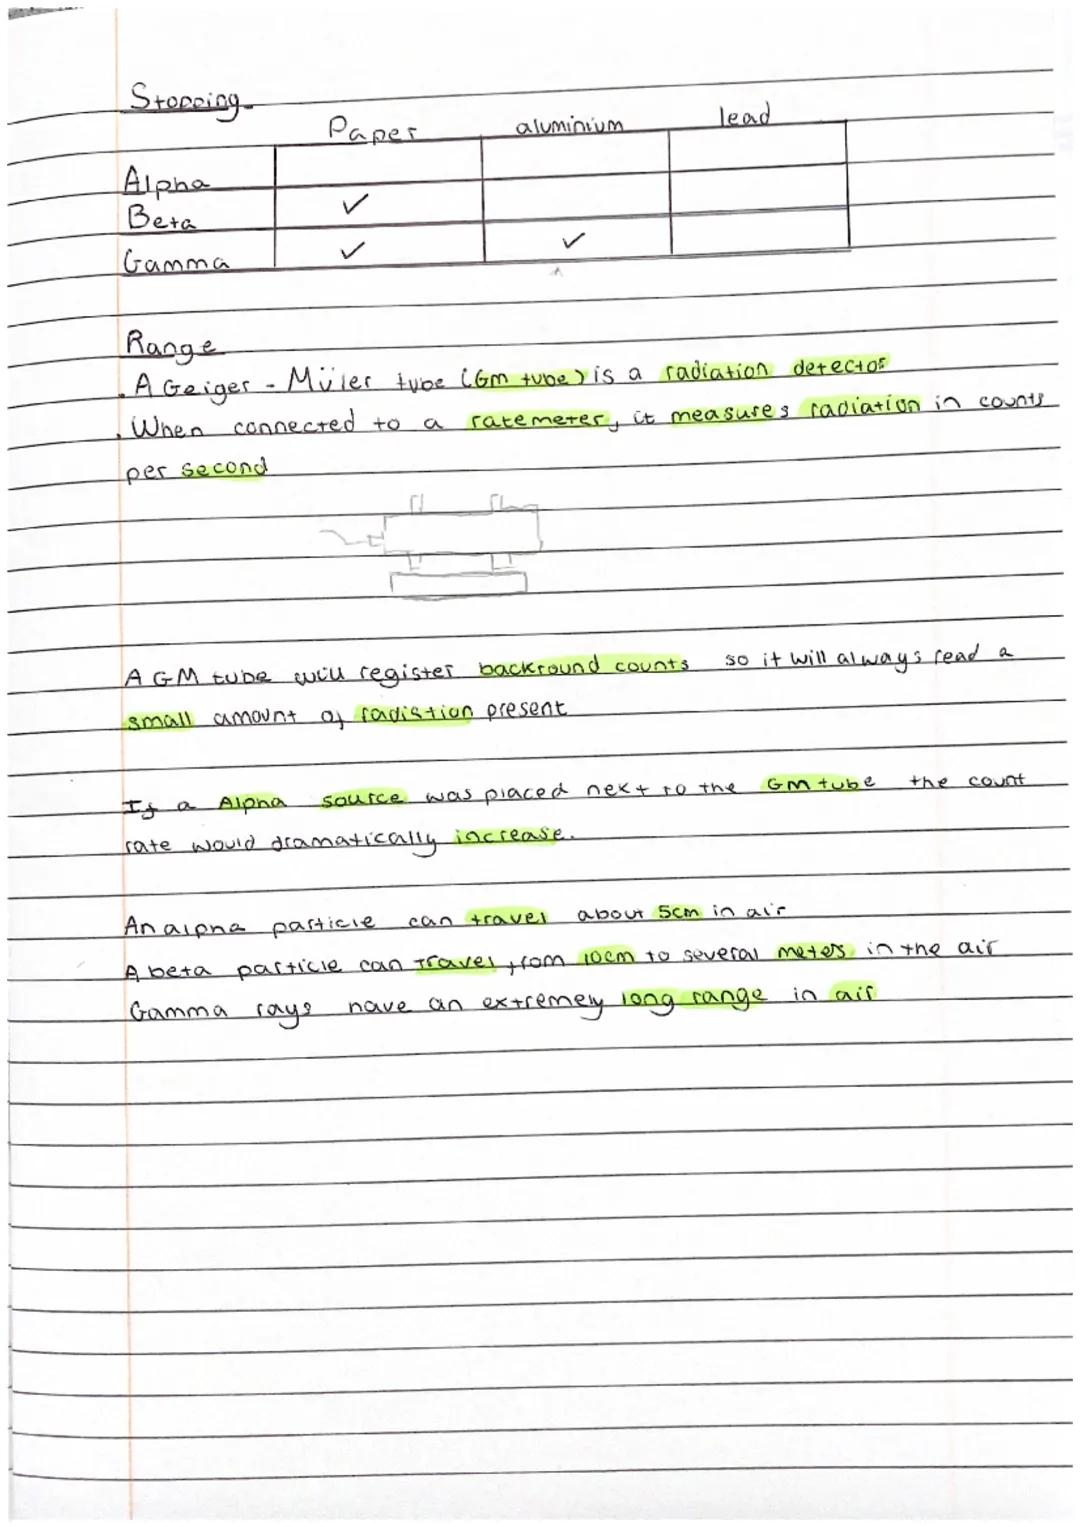 Stopping
Paper aluminium lead
Alpha
Beta ✓
Gamma ✓ ✓
Range
. A Geiger - Müler tube (Gm tube) is a radiation detector
. When connected to a ratemeter, it measures radiation in counts
per second
A GM tube will register backround counts so it will always read a
small amount of radiation present
If a Alpha source was placed next to the Gm tube the count
rate would dramatically increase.
An alpha particle can travel about 5cm in air
A beta particle can travel from 10cm to several meters in the air
Gamma rays have an extremely long range in air